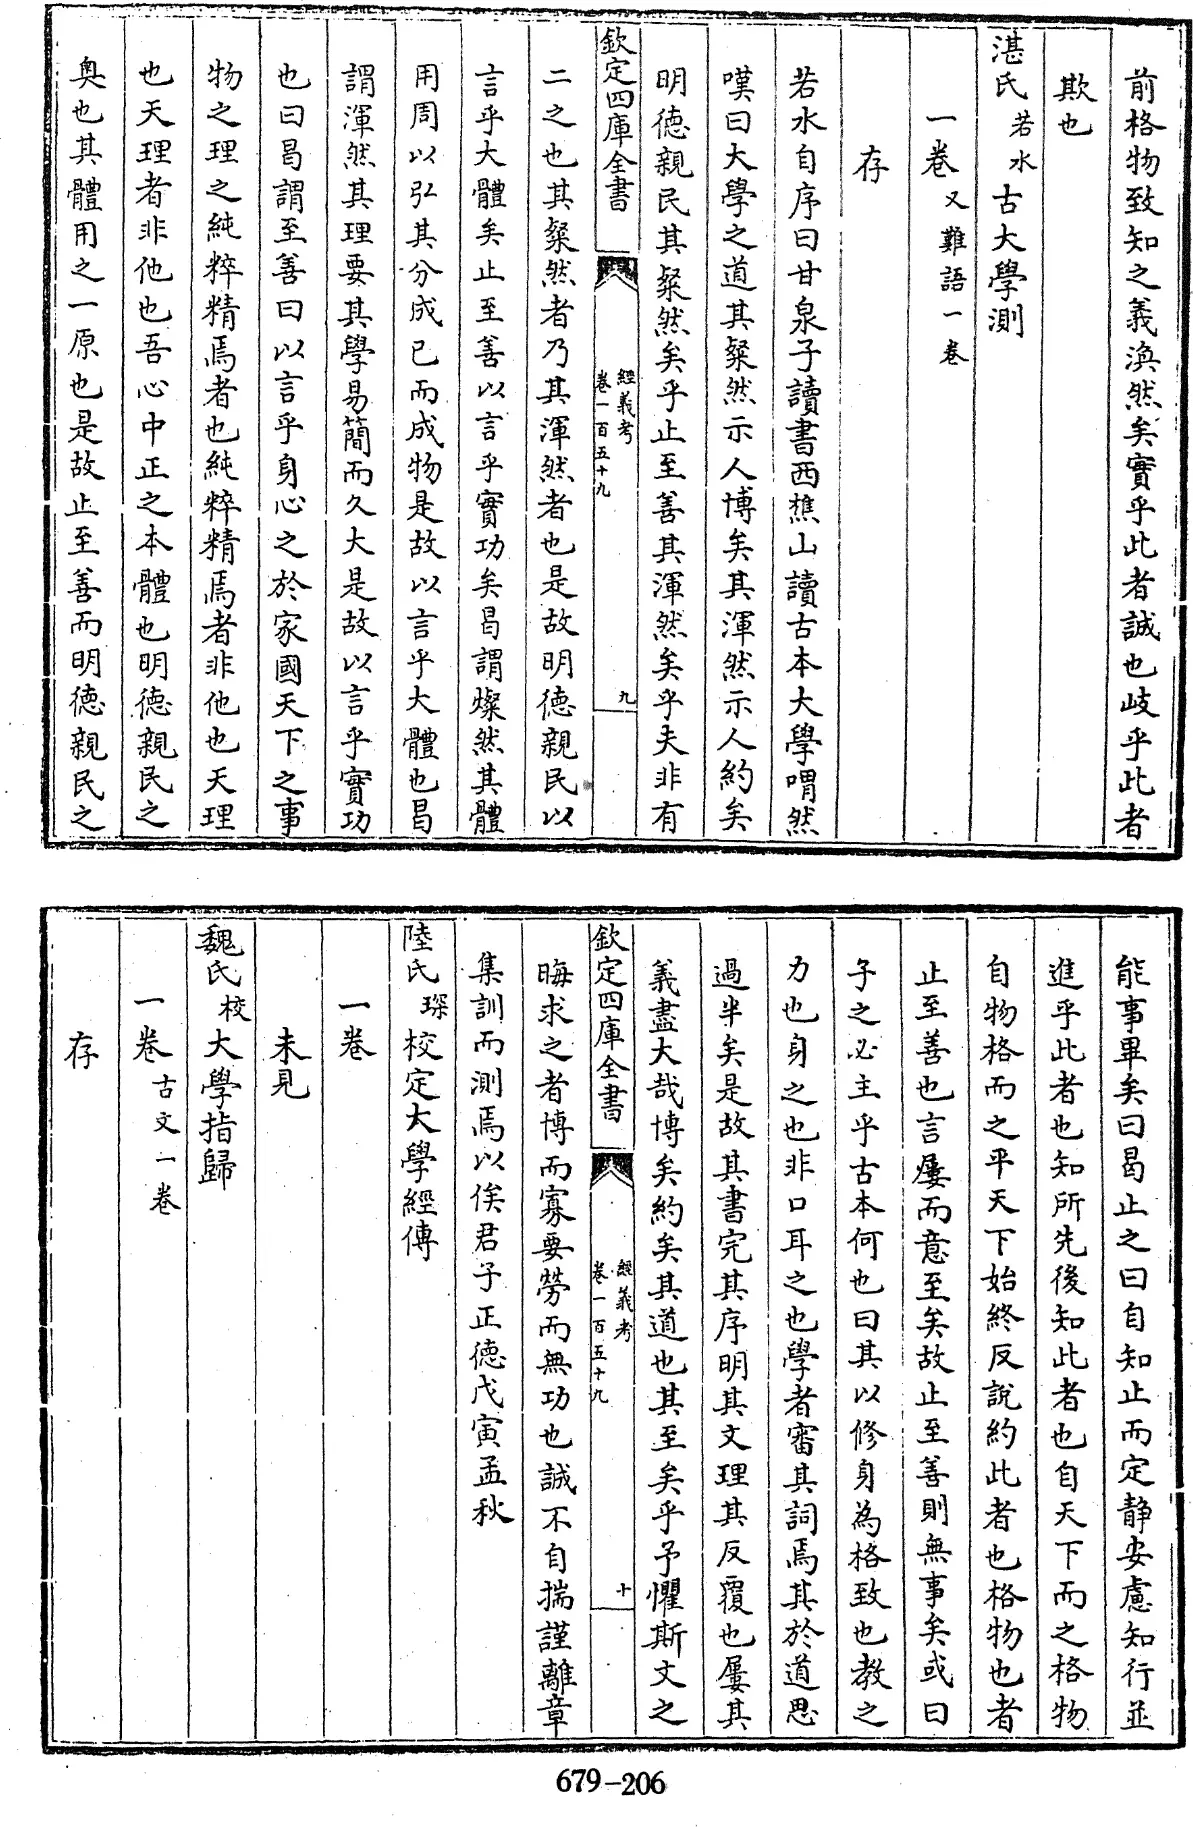 前格物致知之義渙然矣實乎此者誠也岐乎此者
欺也
湛氏若水古大學測
一卷又難語一卷
存
若水自序曰甘泉子讀書西樵山讀古本大學喟然
嘆曰大學之道其粲然示人博矣其渾然示人約矣
明德親民其粲然矣乎止至善其渾然矣乎夫非有
欽定四庫全書
經義考
卷一百五十九
九
二之也其粲然者乃其渾然者也是故明德親民以
言乎大體矣止至善以言乎實功矣曷謂燦然其體
用周以弘其分成己而成物是故以言乎大體也曷
謂渾然其理要其學易簡而久大是故以言乎實功
也曰曷謂至善曰以言乎身心之於家國天下之事
物之理之純粹精焉者也純粹精焉者非他也天理
也天理者非他也吾心中正之本體也明德親民之
奥也其體用之一原也是故止至善而明德親民之
能事畢矣曰曷止之曰自知止而定静安慮知行並
進乎此者也知所先後知此者也自天下而之格物
自物格而之平天下始終反說約此者也格物也者
止至善也言屢而意至矣故止至善則無事矣或曰
子之必主乎古本何也曰其以修身為格致也教之
力也身之也非口耳之也學者審其詞焉其於道思
過半矣是故其書完其序明其文理其反覆也屢其
義盡大哉博矣約矣其道也其至矣乎予懼斯文之
欽定四庫全書
經義考
卷一百五十九
十
晦求之者博而寡要勞而無功也誠不自揣謹離章
集訓而測焉以俟君子正德戊寅孟秋
陸氏琛校定大學經傳
一卷
未見
魏氏校大學指歸
一卷古文一卷
存
679-206